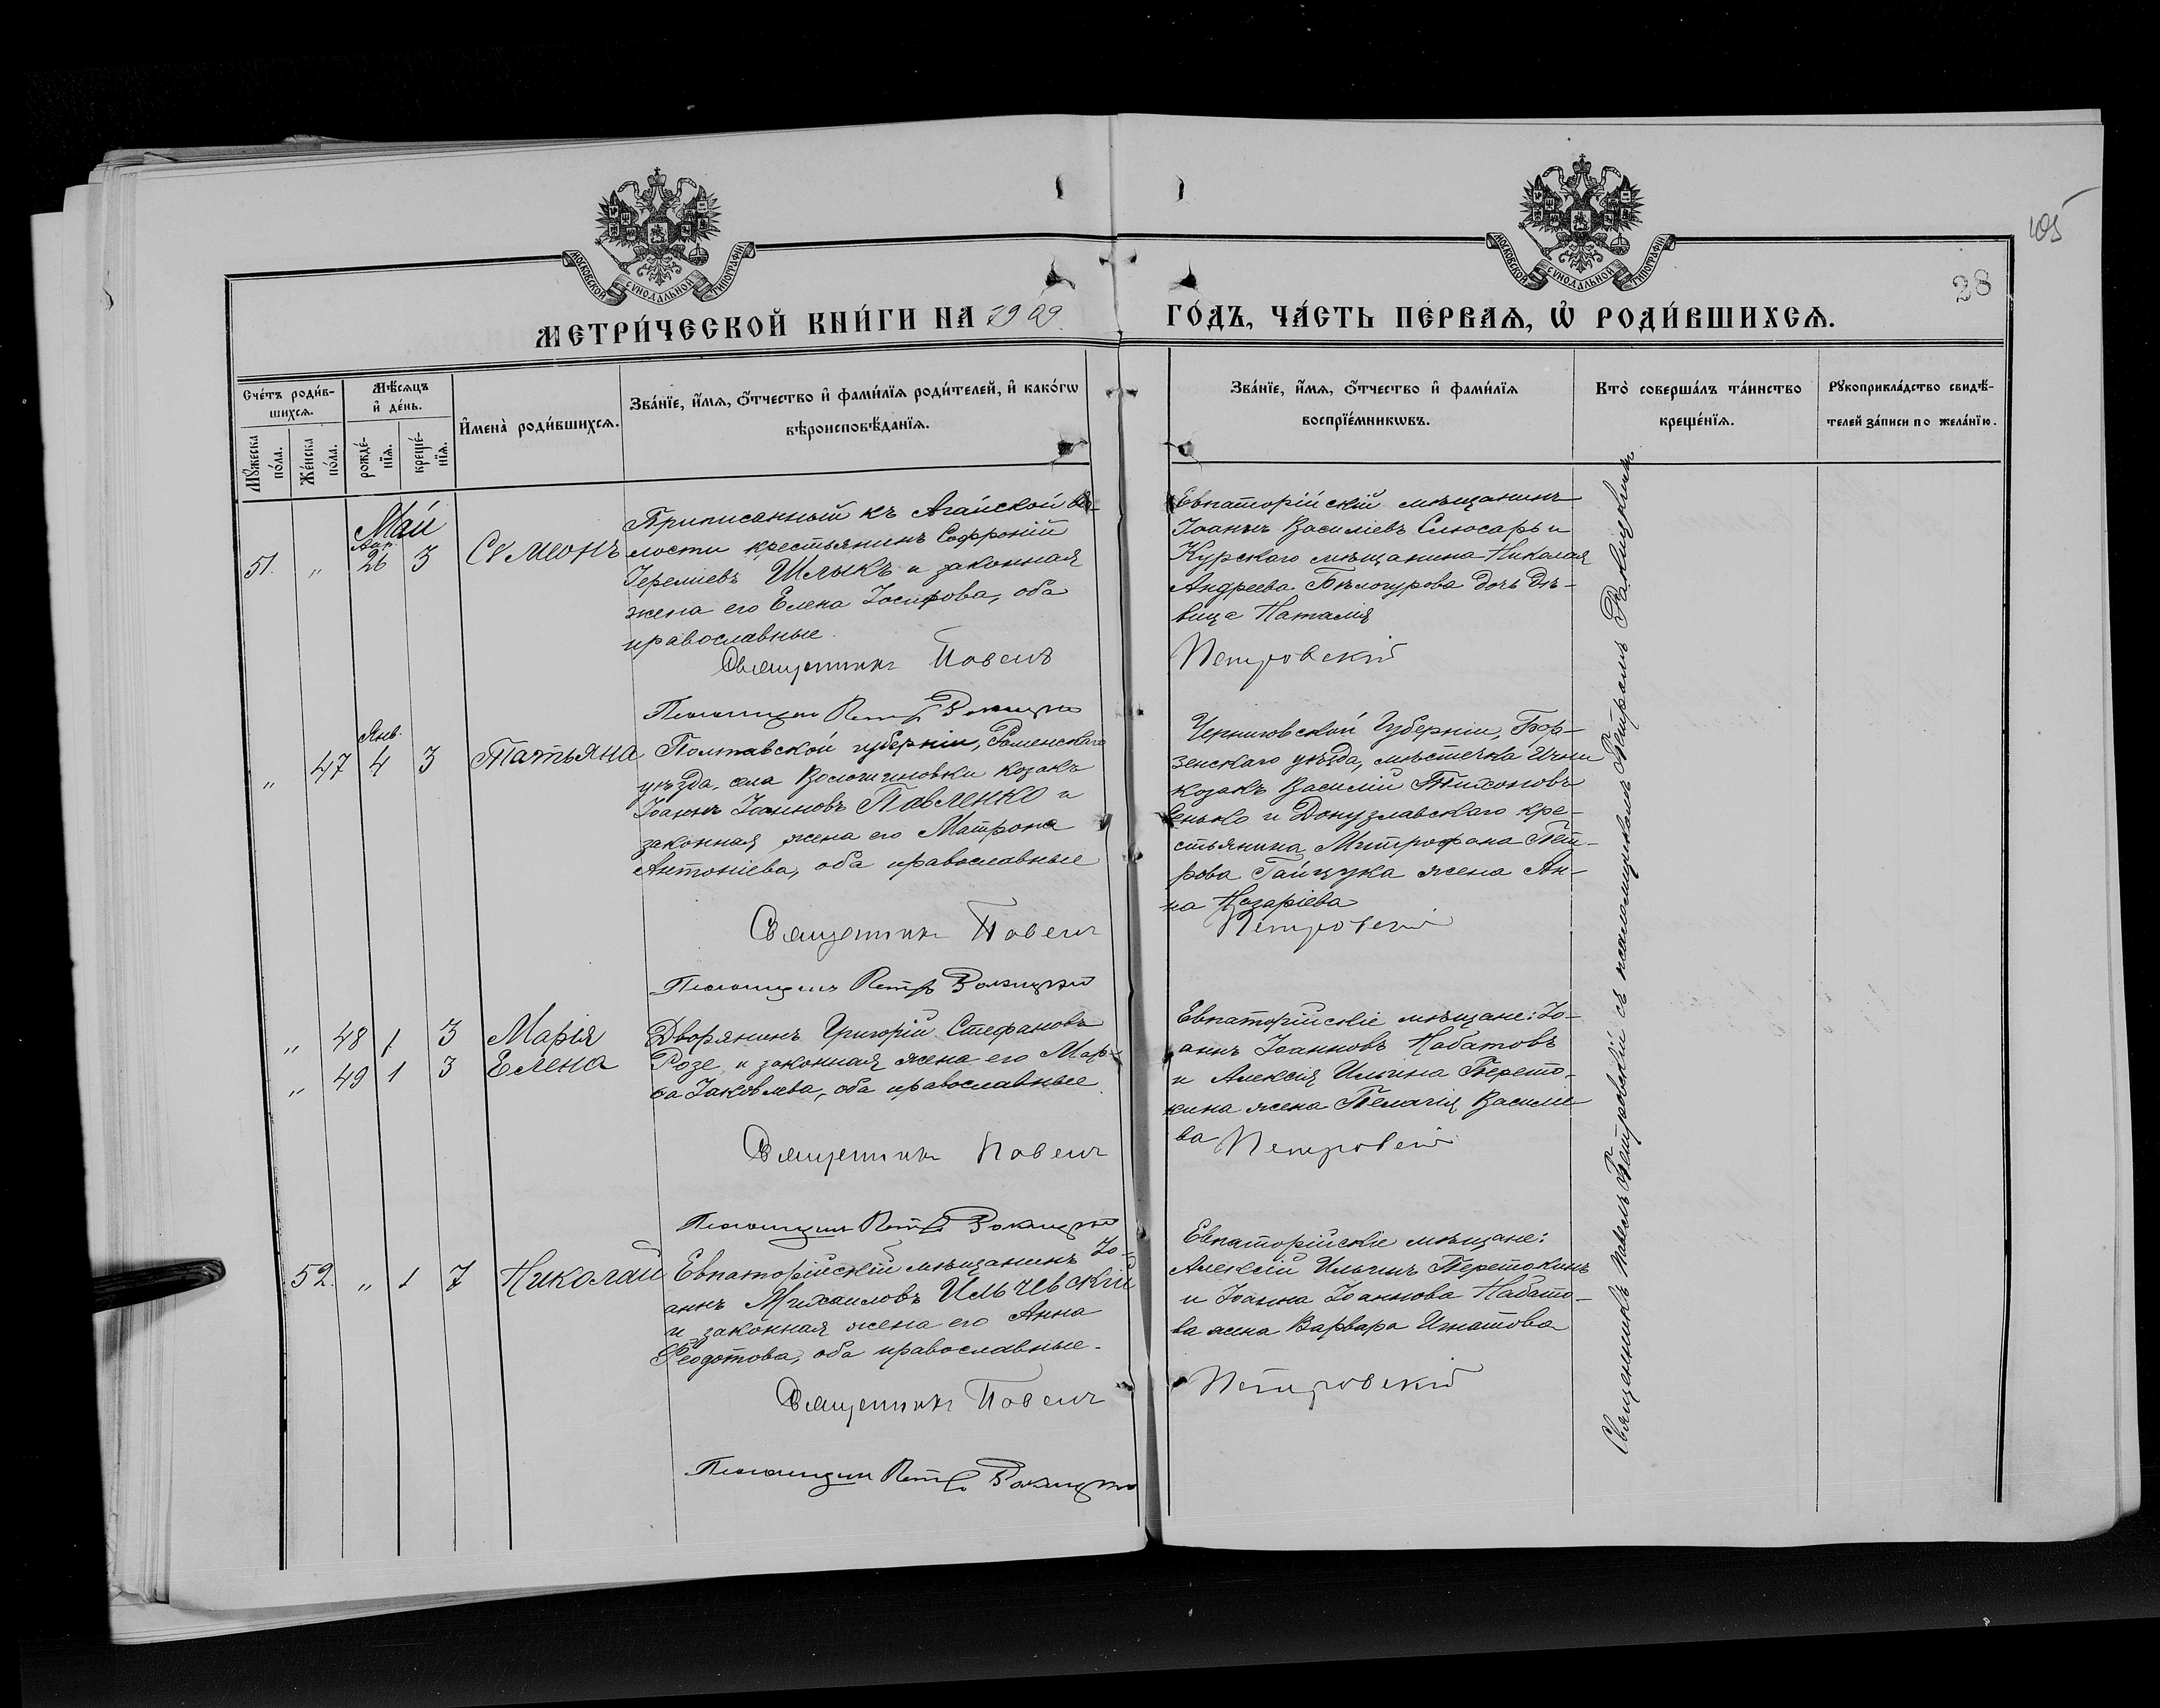 105
28
МОСКОВСКОЙ СѴНОДАЛЬНОЙ ТИПОГРАФІИ
МОСКОВСКОЙ СѴНОДАЛЬНОЙ ТИПОГРАФІИ
МЕТРИ́ЧЕСКОЙ КНИ́ГИ НА 1909 ГО́ДЪ, ЧА́СТЬ ПЕ́РВАѦ, Ѡ҆ РОДИ́ВШИХСѦ.
Сче́тъ роди́в-
шихсѧ.
Мꙋ́жеска по́ла.
Же́нска по́ла.
Мѣ́сѧцъ
и҆ де́нь.
рожде́-
нїѧ.
креще́-
нїѧ.
И҆мена̀ роди́вшихсѧ.
Зва́нїе, и҆́мѧ, ѻ҆́тчество и҆ фами́лїѧ роди́телей, и҆ како́гѡ
вѣроисповѣ́данїѧ.
Зва́нїе, и҆́мѧ, ѻ҆́тчество и҆ фами́лїѧ
воспрїе́мникѡвъ.
Кто̀ соверша́лъ та́инство
креще́нїѧ.
Рꙋкоприкла́дство свидѣ́-
телей за́писи по жела́нїю.
Май
51. „ Апр. 26 3 Симеонъ
Приписанный къ Агайской во-
лости крестьянинъ Софроній
Іереміевъ Шлыкъ и законная
жена его Елена Іосифова, оба
православные.
Священникъ Павелъ
Псаломщикъ Петръ Ракицкій
Евпаторійскій мѣщанинъ
Іоаннъ Василіевъ Слюсарь и
Курскаго мѣщанина Николая
Андреева Бѣлогурова дочь дѣ-
вица Наталія
Петровскій
„ 47 Янв. 4 3 Татьяна
Полтавской губерніи, Роменскаго
уѣзда, села Волошиновки козакъ
Іоаннъ Іоанновъ Павленко и
законная жена его Матрона
Антоніева, оба православные
Священникъ Павелъ
Псаломщикъ Петръ Ракицкій
Черниговской губерніи, Бор-
зенскаго уѣзда, мѣстечка Ични
козакъ Василій Тихоновъ
Сенько и Донузлавскаго кре-
стьянина Митрофана Пет-
рова Гайчука жена Ан-
на Назаріева
Петровскій
„ 48 1 3 Марія
„ 49 1 3 Елена
Дворянинъ Григорій Стефановъ
Розе и законная жена его Мар-
ѳа Іаковлева, оба православные
Священникъ Павелъ
Псаломщикъ Петръ Ракицкій
Евпаторійскіе мѣщане: Іо-
аннъ Іоанновъ Набатовъ
и Алексія Ильина Перето-
кина жена Пелагія Василіе
ва Петровскій
52. „ 1 7 Николай
Евпаторійскій мѣщанинъ Іо-
аннъ Михаиловъ Ильчевскій
и законная жена его Анна
Ѳеодотова, оба православные.
Священникъ Павелъ
Псаломщикъ Петръ Ракицкій
Евпаторійскіе мѣщане:
Алексій Ильинъ Перетокинъ
и Іоанна Іоаннова Набато-
ва жена Варвара Игнатова
Петровскій
Священникъ Павелъ Петровскій съ псаломщикомъ Петромъ Ракицкимъ